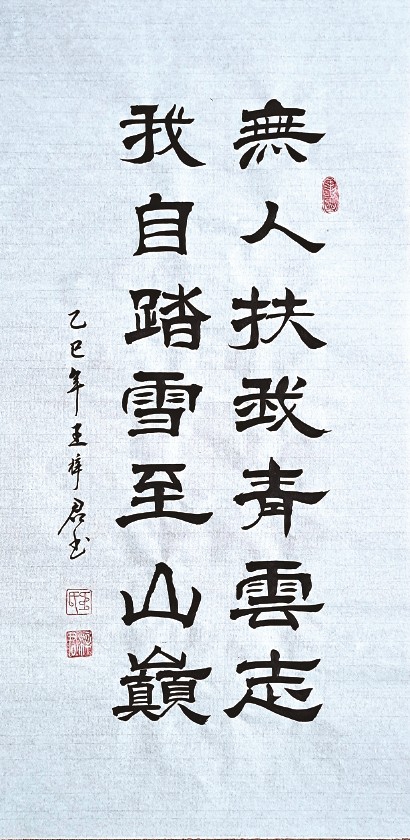 無人扶我青雲志
我自踏雪至山巔
乙巳年王梓君书